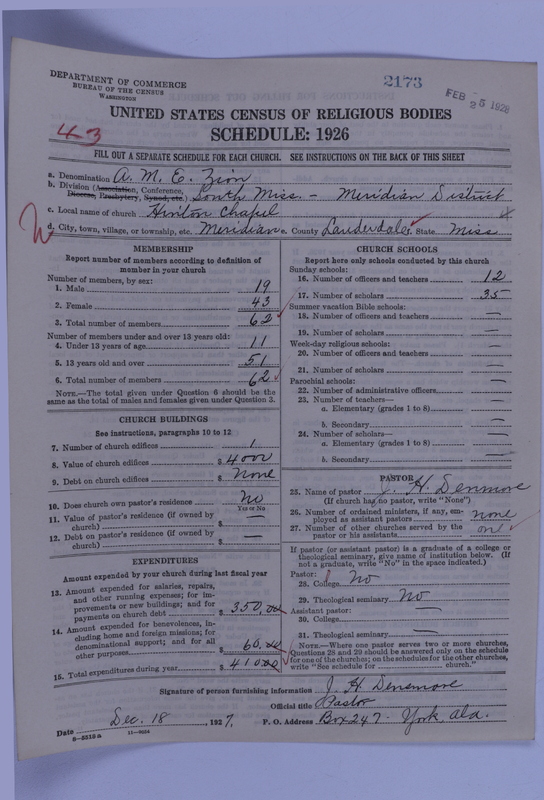 DEPARTMENT OF COMMERCE
BUREAU OF THE CENSUS
WASHINGTON
2173
FEB 25 1928
UNITED STATES CENSUS OF RELIGIOUS BODIES
SCHEDULE: 1926
43
FILL OUT A SEPARATE SCHEDULE FOR EACH CHURCH. SEE INSTRUCTIONS ON THE BACK OF THIS SHEET
a. Denomination A. M. E. Zion
b. Division (Association, Conference, Diocese, Presbytery, Synod, etc.) South Miss. - Meridian District
c. Local name of church Hinton Chapel
d. City, town, village, or township, etc. Meridian e. County Lauderdale f. State Miss
MEMBERSHIP
Report number of members according to definition of
member in your church
Number of members, by sex:
1. Male 19
2. Female 43
3. Total number of members 62
Number of members under and over 13 years old:
4. Under 13 years of age 11
5. 13 years old and over 51
6. Total number of members 62
NOTE.—The total given under Question 6 should be the
same as the total of males and females given under Question 3.
CHURCH BUILDINGS
See instructions, paragraphs 10 to 12
7. Number of church edifices 1
8. Value of church edifices $ 4000
9. Debt on church edifices $ None
10. Does church own pastor's residence No
Yes or No
11. Value of pastor's residence (if owned by
church) $ —
12. Debt on pastor's residence (if owned by
church) $ —
EXPENDITURES
Amount expended by your church during last fiscal year
13. Amount expended for salaries, repairs,
and other running expenses; for im-
provements or new buildings; and for
payments on church debt $ 350.00
14. Amount expended for benevolences, in-
cluding home and foreign missions; for
denominational support; and for all
other purposes $ 60.00
15. Total expenditures during year $ 410.00
CHURCH SCHOOLS
Report here only schools conducted by this church
Sunday schools:
16. Number of officers and teachers 12
17. Number of scholars 35
Summer vacation Bible schools:
18. Number of officers and teachers —
19. Number of scholars —
Week-day religious schools:
20. Number of officers and teachers —
21. Number of scholars —
Parochial schools:
22. Number of administrative officers —
23. Number of teachers—
a. Elementary (grades 1 to 8) —
b. Secondary —
24. Number of scholars—
a. Elementary (grades 1 to 8) —
b. Secondary —
PASTOR
25. Name of pastor J. H. Denmore
(If church has no pastor, write "None")
26. Number of ordained ministers, if any, em-
ployed as assistant pastors none
27. Number of other churches served by the
pastor or his assistants one
If pastor (or assistant pastor) is a graduate of a college or
theological seminary, give name of institution below. (If
not a graduate, write "No" in the space indicated.)
Pastor:
28. College No
29. Theological seminary No
Assistant pastor: —
30. College
31. Theological seminary —
NOTE.—Where one pastor serves two or more churches,
Questions 28 and 29 should be answered only on the schedule
for one of the churches; on the schedules for the other churches,
write "See schedule for church."
Signature of person furnishing information J. H. Densmore
Official title Pastor
Date Dec. 18, 1927. P. O. Address Box 247 - York, Ala.
8-5518a 11-8088